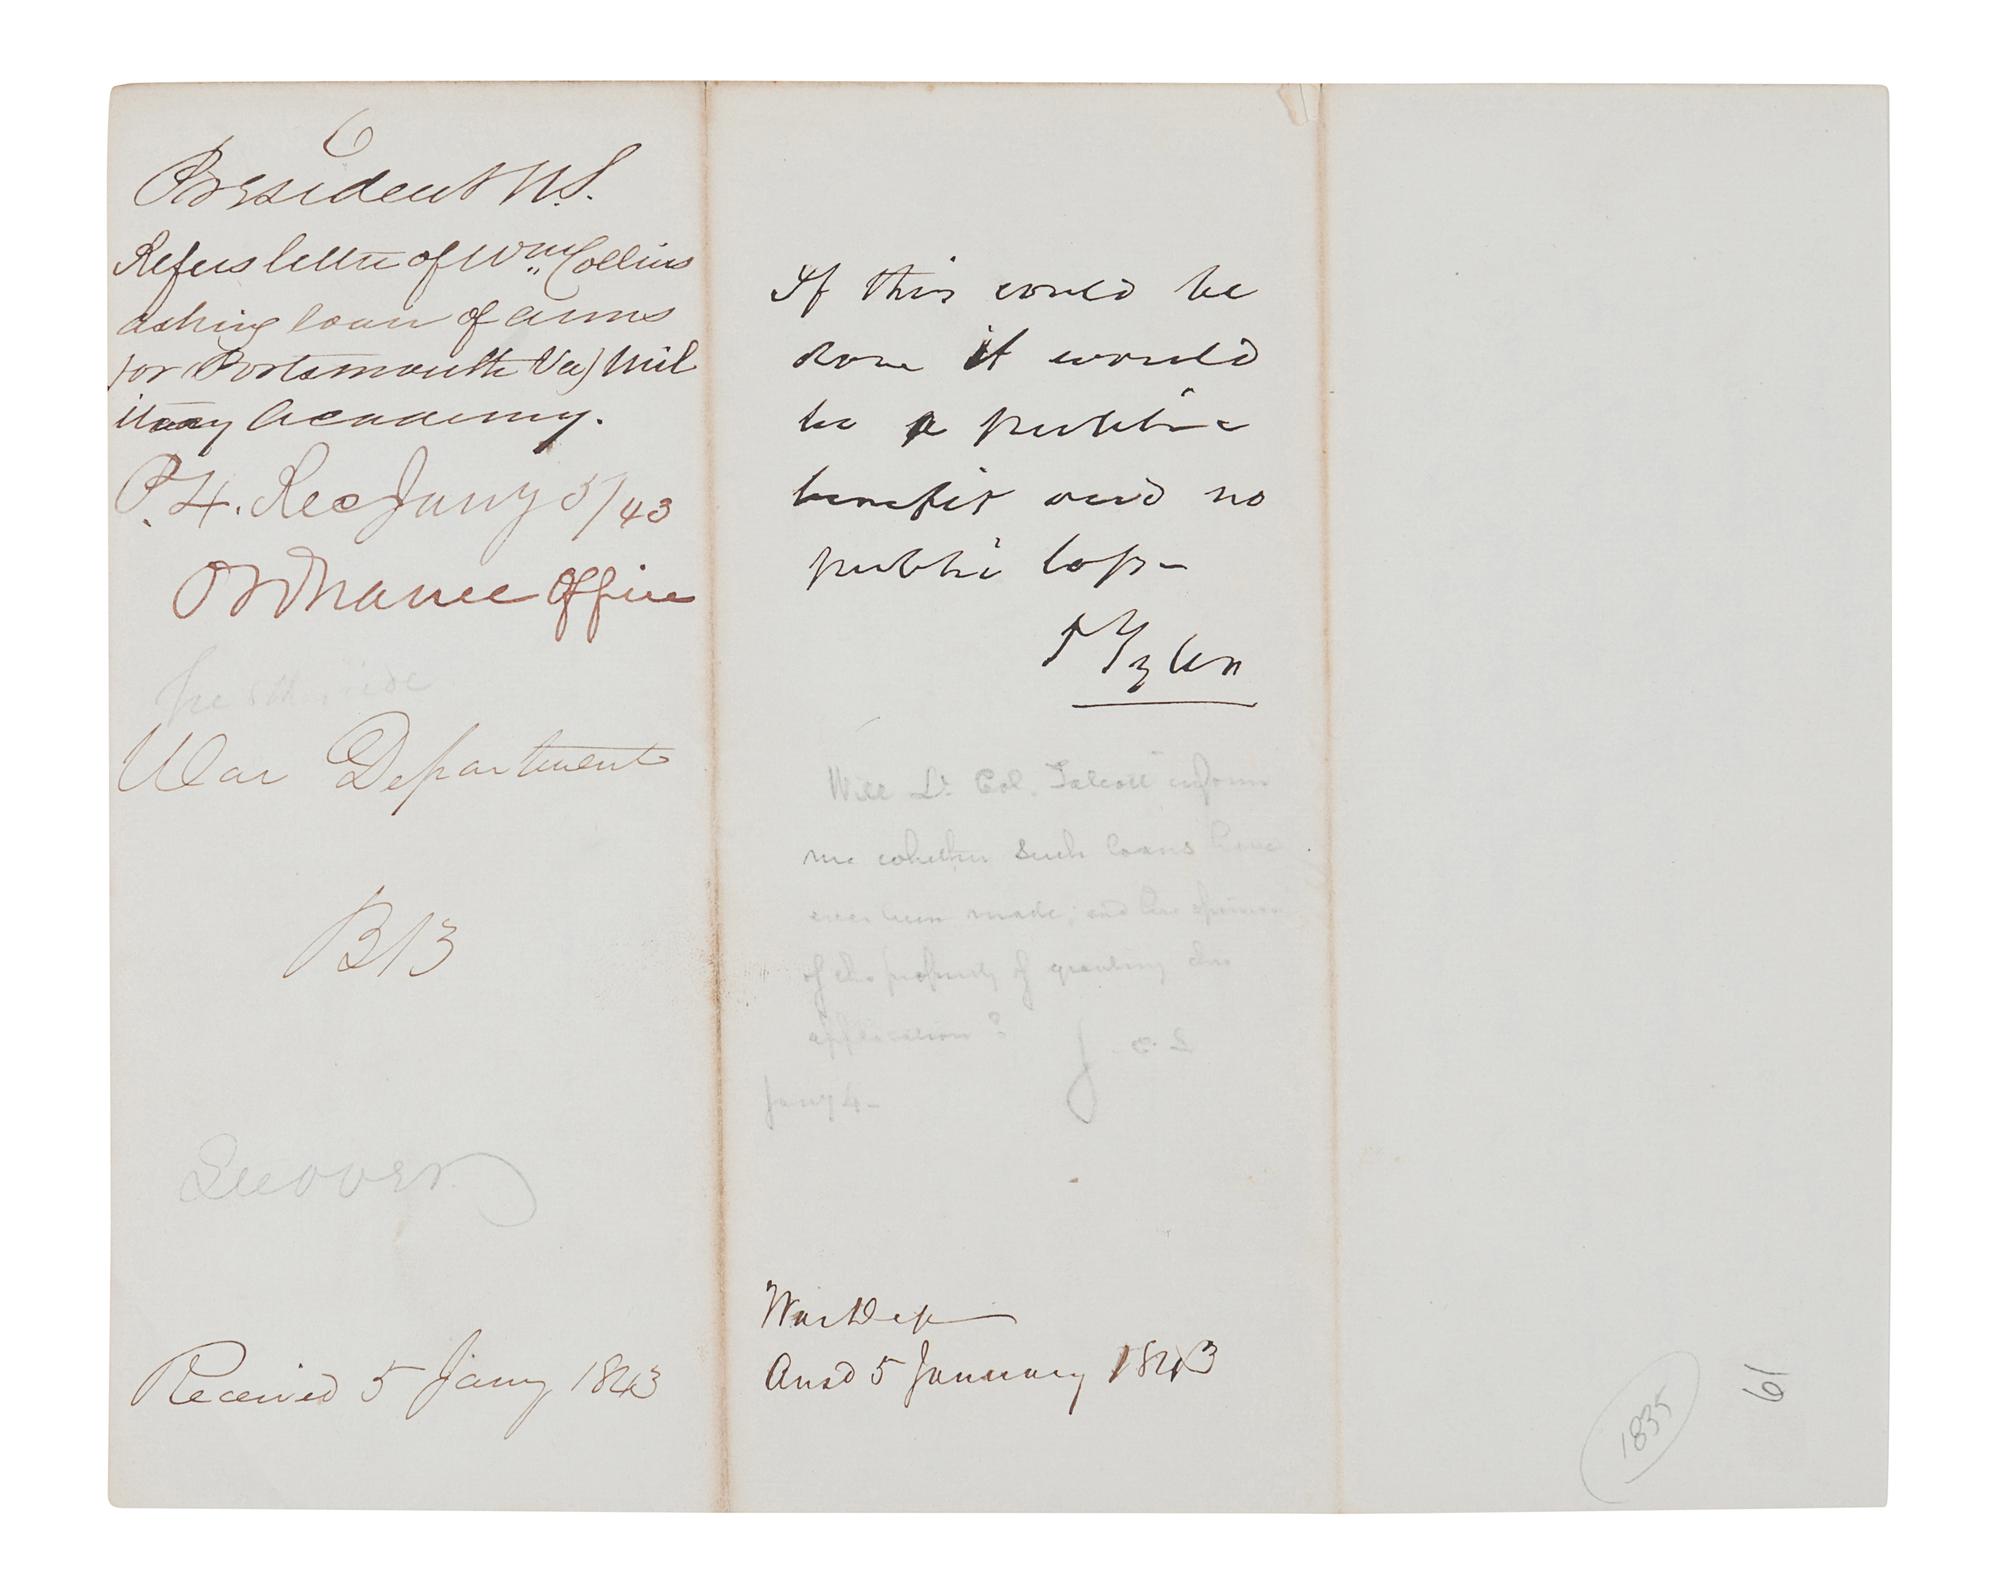 6
President U.S.
Refers letter of Wm Collins
asking loan of arms
for Portsmouth Va) Mil
itary Academy.
P. 4. Rec Jany 5/43
Ordnance Office
War Department
B 13
See over
Received 5 Jany 1843
If this could be
done it would
be a public
benefit and no
public loss—
J Tyler
Will Lt. Col. Talcott inform
me whether such loans have
ever been made; and his opinion
of the propriety of granting this
application?
J. C. S
Jany 4—
War Dep
Ansd 5 January 1843
1835
61